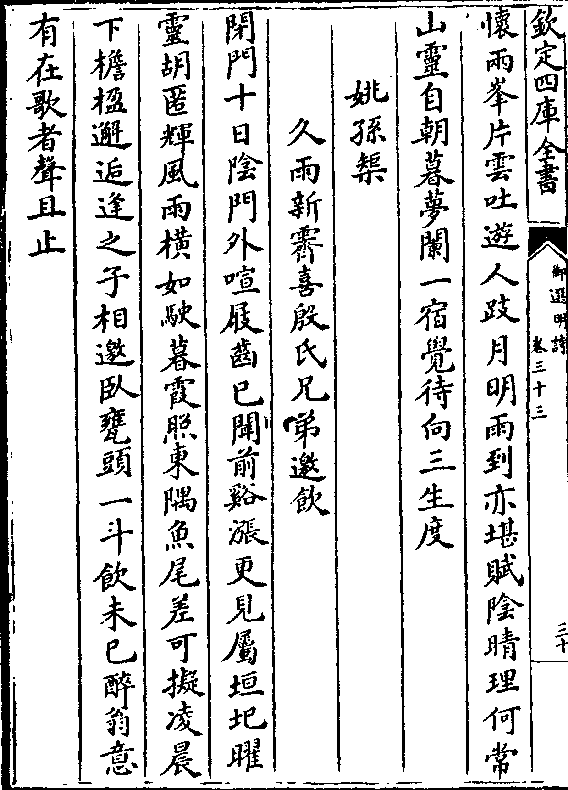 欽定四庫全書
御選明詩
卷三十三
三十
懷雨峯片雲吐遊人跂月明雨到亦堪賦陰晴理何常
山靈自朝暮夢闌一宿覺待向三生度
姚孫榘
久雨新霽喜殷氏兄弟邀飲
閉門十日陰門外喧屐齒已聞前谿漲更見屬垣圮曜
靈胡匿輝風雨橫如駛暮霞照東隅魚尾差可擬凌晨
下檐楹邂逅逢之子相邀臥甕頭一斗飲未已醉翁意
有在歌者聲且止